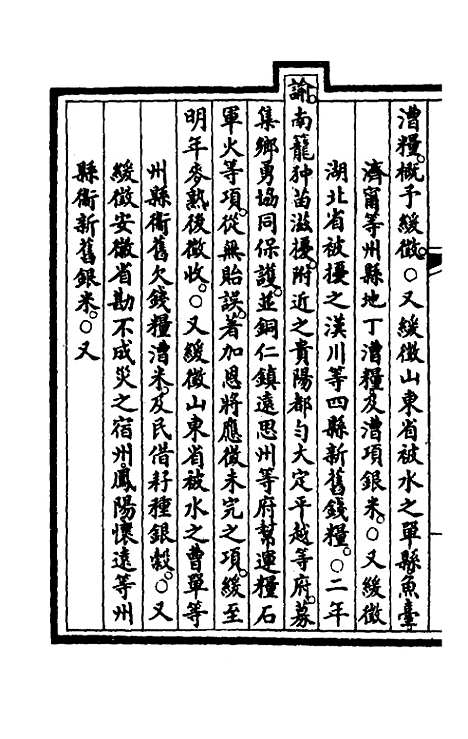 漕糧。概予緩徵。○又緩徵山東省被水之單縣魚臺
濟甯等州縣地丁漕糧及漕項銀米。○又緩徵
湖北省被擾之漢川等四縣新舊錢糧。○二年
諭。南籠狆苗滋擾。附近之貴陽都勻大定平越等府。募
集鄉勇協同保護。並銅仁鎮遠思州等府幫運糧石
軍火等項。從無貽誤。著加恩將應徵未完之項。緩至
明年麥熟後徵收。○又緩徵山東省被水之曹單等
州縣衞舊欠錢糧漕米。及民借籽種銀穀。○又
緩徵安徽省勘不成災之宿州。鳳陽懷遠等州
縣衞新舊銀米。○又